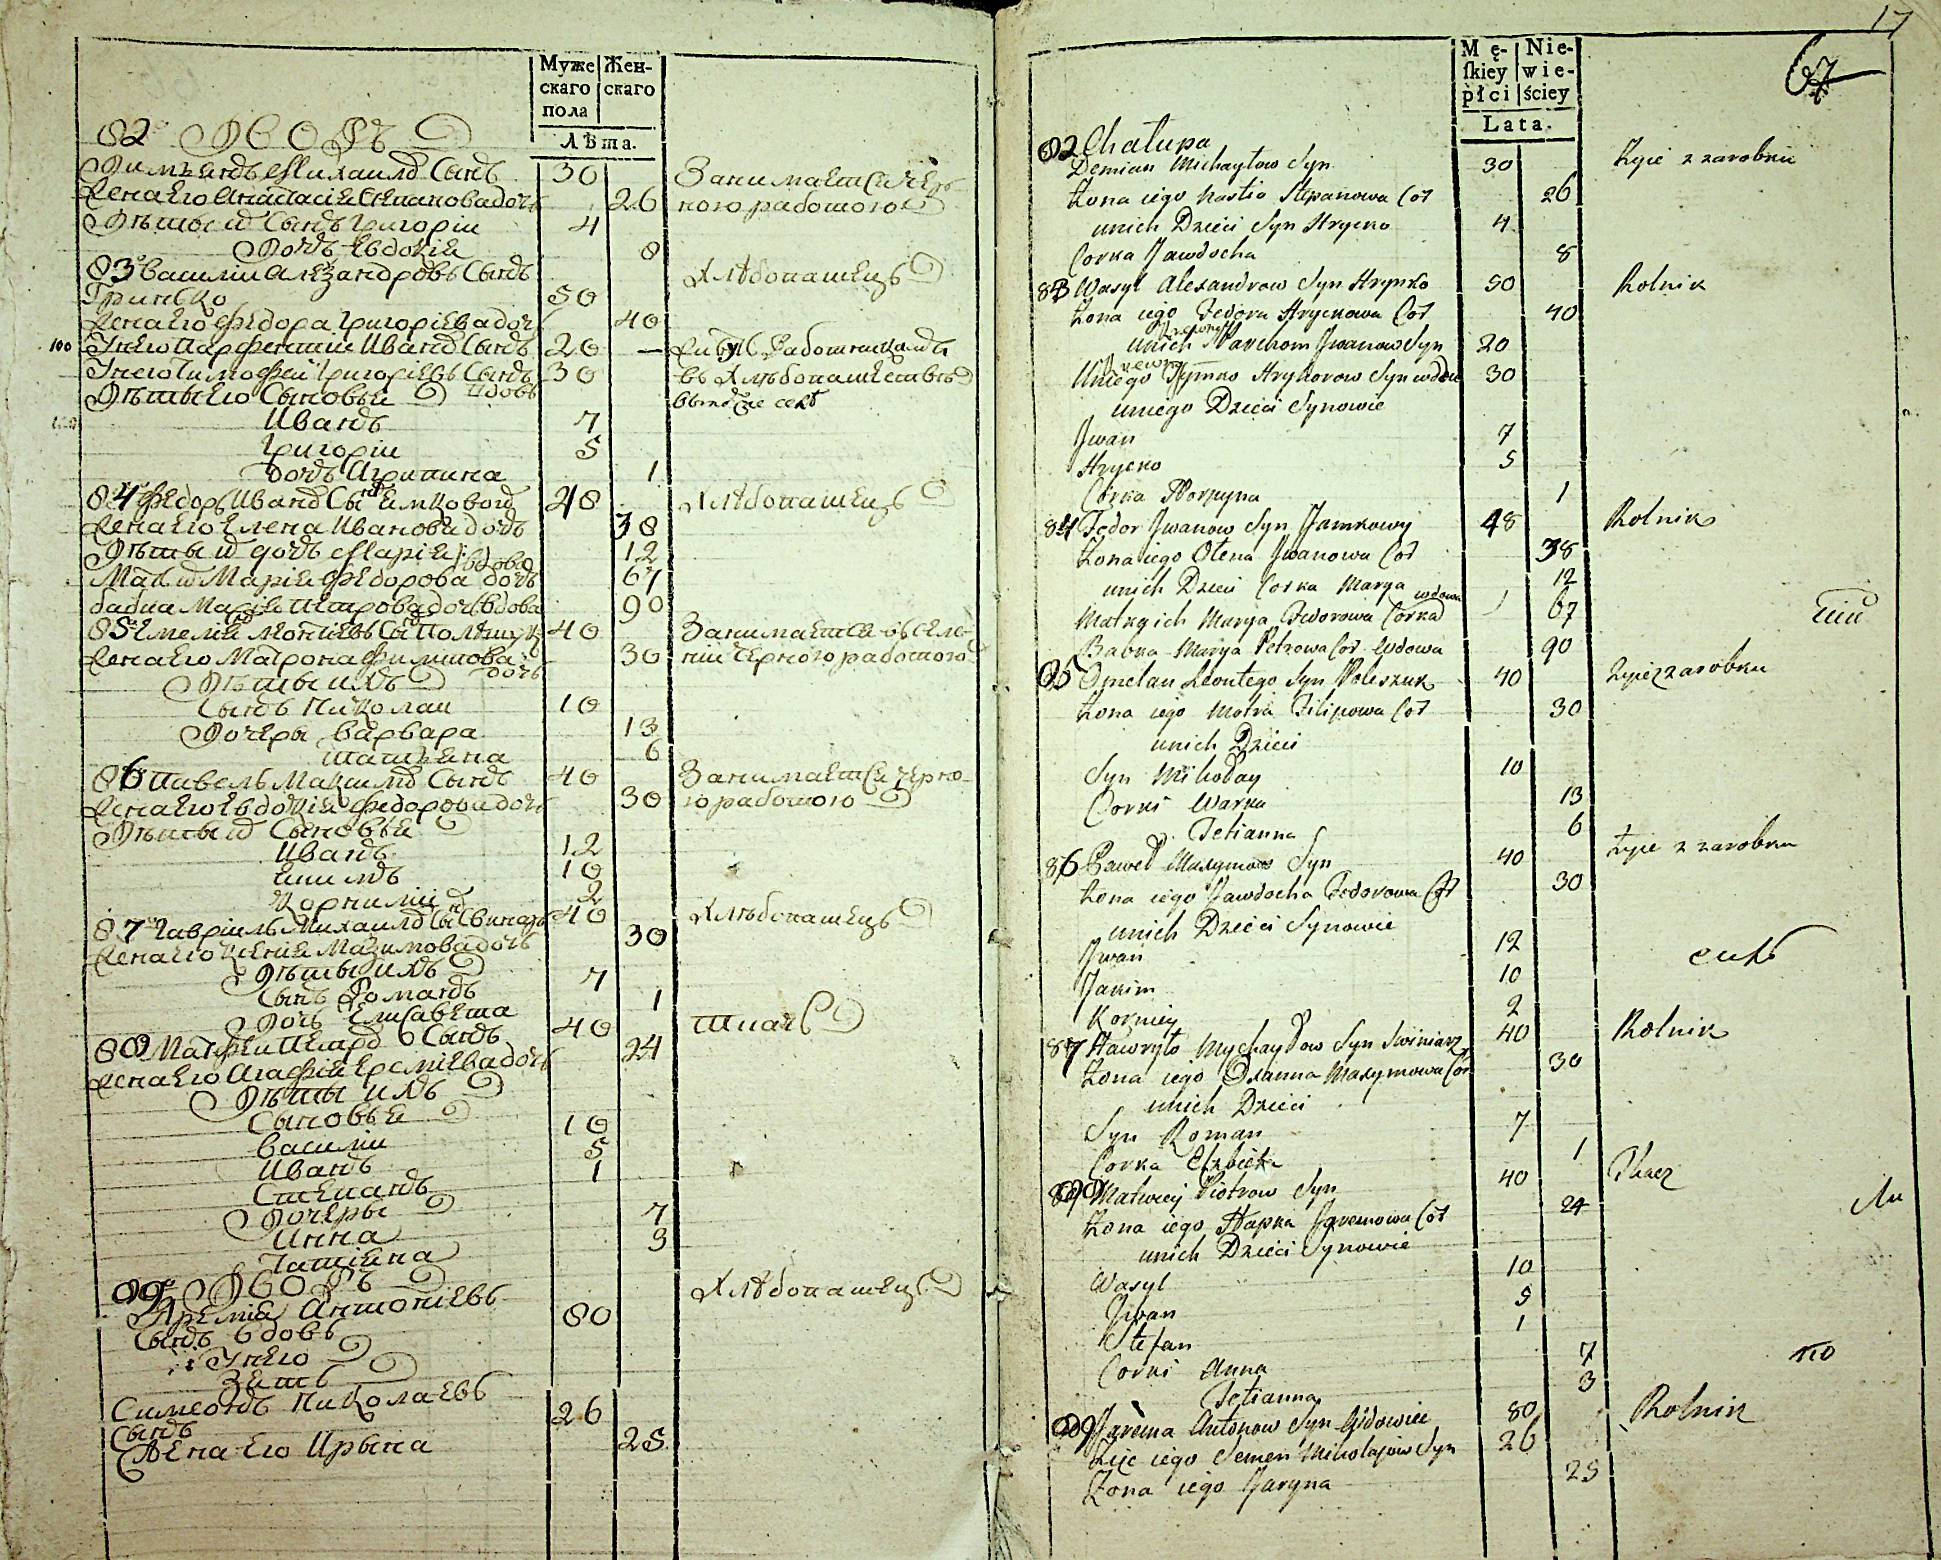 Муже
скаго
пола
Жен-
скаго
Лѣта.
82 Дворъ
Димъянъ Михаиловъ Сынъ 30 Занимается чер-
Жена его Анастасія Степановадочь 26 ного работою
Дѣты ихъ Сынъ Григоріи 4
Дочь Евдокія 8
83 Василіи Александровъ Сынъ Хлѣбопашецъ
Гринько 50
Жена его Федора Григоріевадочь 40
100 Унего Парфентии Ивановъ Сынъ 20
Унего Тимофеи Григоріевъ Сынъ вдовъ 30 въ Хлѣбопашествѣ
Дѣты его Сыновья
Иванъ 7
Григоріи 5
дочь Агрипина 1
84 Федоръ Ивановъ Сынъ Емковои 48 Хлѣбопашецъ
Жена его Елена Иванова дочь 38
Дѣты ихъ дочь Марія 12
Мать ихъ Марія Федорова дочь вдова 67
бабка Марія Петрова дочь вдова 90
85 Емеліянъ Леонтіевъ Сынъ Полѣщукъ 40 Занимается въ селе-
Жена его Матрона Филипова дочь 30 ніи черного работою
Дѣты ихъ
Сынъ Николаи 10
Дочеры Варвара 13
татіяна 6
86 Павелъ Максимовъ Сынъ 40 Занимается черно-
Жена его Евдокія Федоровадочь 30 го работою
Дѣты ихъ Сыновья
Иванъ 12
Екимъ 10
Корниліи 2
87 Гавріилъ Михаиловъ Сынъ Свинаръ 40 Хлѣбопашецъ
Жена его Ксенія Максимовадочь 30
Дѣты ихъ
Сынъ Романъ 7
Дочь Елисавета 1
88 Матфеи Петровъ Сынъ 40 Ткачъ
Жена его Агафія Еремѣевадочь 24
Дѣты ихъ
Сыновья
Василіи 10
Иванъ 5
Степанъ 1
Дочеры
Анна 7
Татіяна 3
89 Дворъ Хлѣбопашецъ
Яремія Антоніевъ 80
Сынъ вдовъ
Унего
Зять
Симеонъ Николаевъ 26
Сынъ
Жена его Ирына 25
17
67
Mę-
skiey
płci
Nie-
wie-
ściey
Lata.
82 Chałupa
Demian Michayłow Syn 30 Zyie z zarobku
Zona iego Nastia Stepanowa Cór 26
unich Dzieci Syn Hrycko 4
Corka Jawdocha 8
83 Wasyl Alexandrow Syn Hrynko 50 Rolnik
Zona iego Fedora Hryckowa Cór 40
unich Krewny Parchom Jwanow Syn 20
Uniego Krewny Tymko Hryhorow Syn wdow 30
uniego Dzieci Synowie
Jwan 7
Hrycko 5
Corka Horpyna 1
84 Fedor Jwanow Syn Jamkowy 48 Rolnik
Zona iego Olena Jwanowa Cór 38
unich Dzieci Corka Marya 12
Matka ich Marya Fedorowa Corka wdowa 67
Babka Marya Petrowa Cór Wdowa 90
85 Omelan Leontego Syn Poleszuk 40 Zyie z zarobku
Zona iego Motra Filipowa Cór 30
unich Dzieci
Syn Mikołay 10
Corki Warka 13
Tetianna 6
86 Paweł Maxymow Syn 40 Zyie z zarobku
Zona iego Jawdocha Fedorowa Cór 30
unich Dzieci Synowie
Jwan 12
Jakim 10
Korniey 2
87 Hawryło Mychayłow Syn Swiniarz 40 Rolnik
Zona iego Oxanna Maxymowa Cór 30
unich Dzieci
Syn Roman 7
Corka Elzbieta 1
88 Matwiey Piotrow Syn 40 Tkacz
Zona iego Hapka Jaremowa Cór 24
unich Dzieci Synowie
Wasyl 10
Jwan 5
Stefan 1
Corki Anna 7
Tetianna 3
89 Jarema Antonow Syn Wdowiec 80 Rolnik
Zięć iego Semen Mikołajow Syn 26
Zona iego Jaryna 25